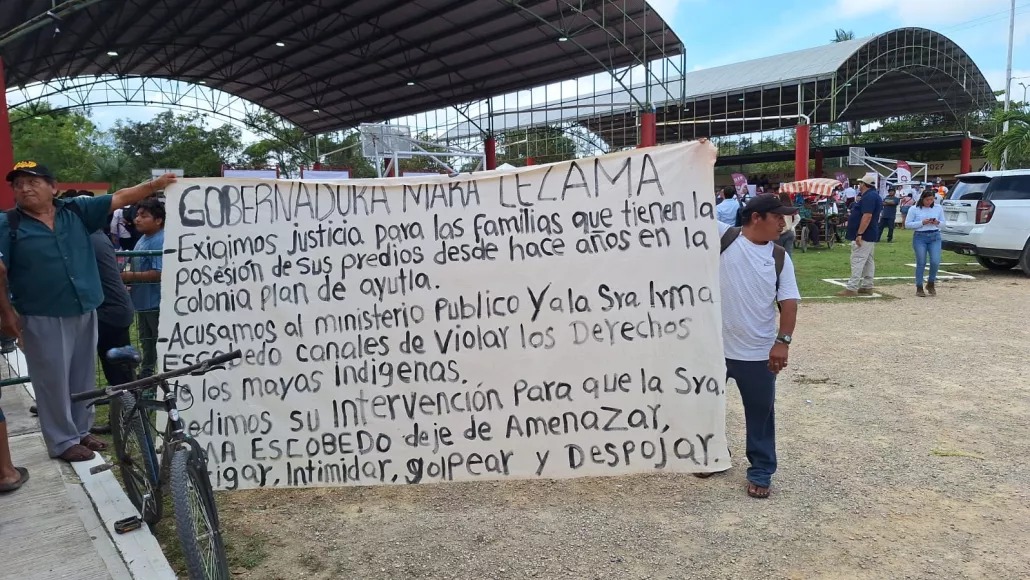 GOBERNADORA MARA LEZAMA
-Exigimos justicia para las familias que tienen la
posesión de sus predios desde hace años en la
colonia plan de ayutla.
-Acusamos al ministerio Publico Y a la Sra Irma
Escobedo canales de Violar los Derechos
los mayas indigenas.
edimos su Intervención para que la Sra.
MA ESCOBEDO deje de Amenazar,
igar, Intimidar, golpear y Despojar.